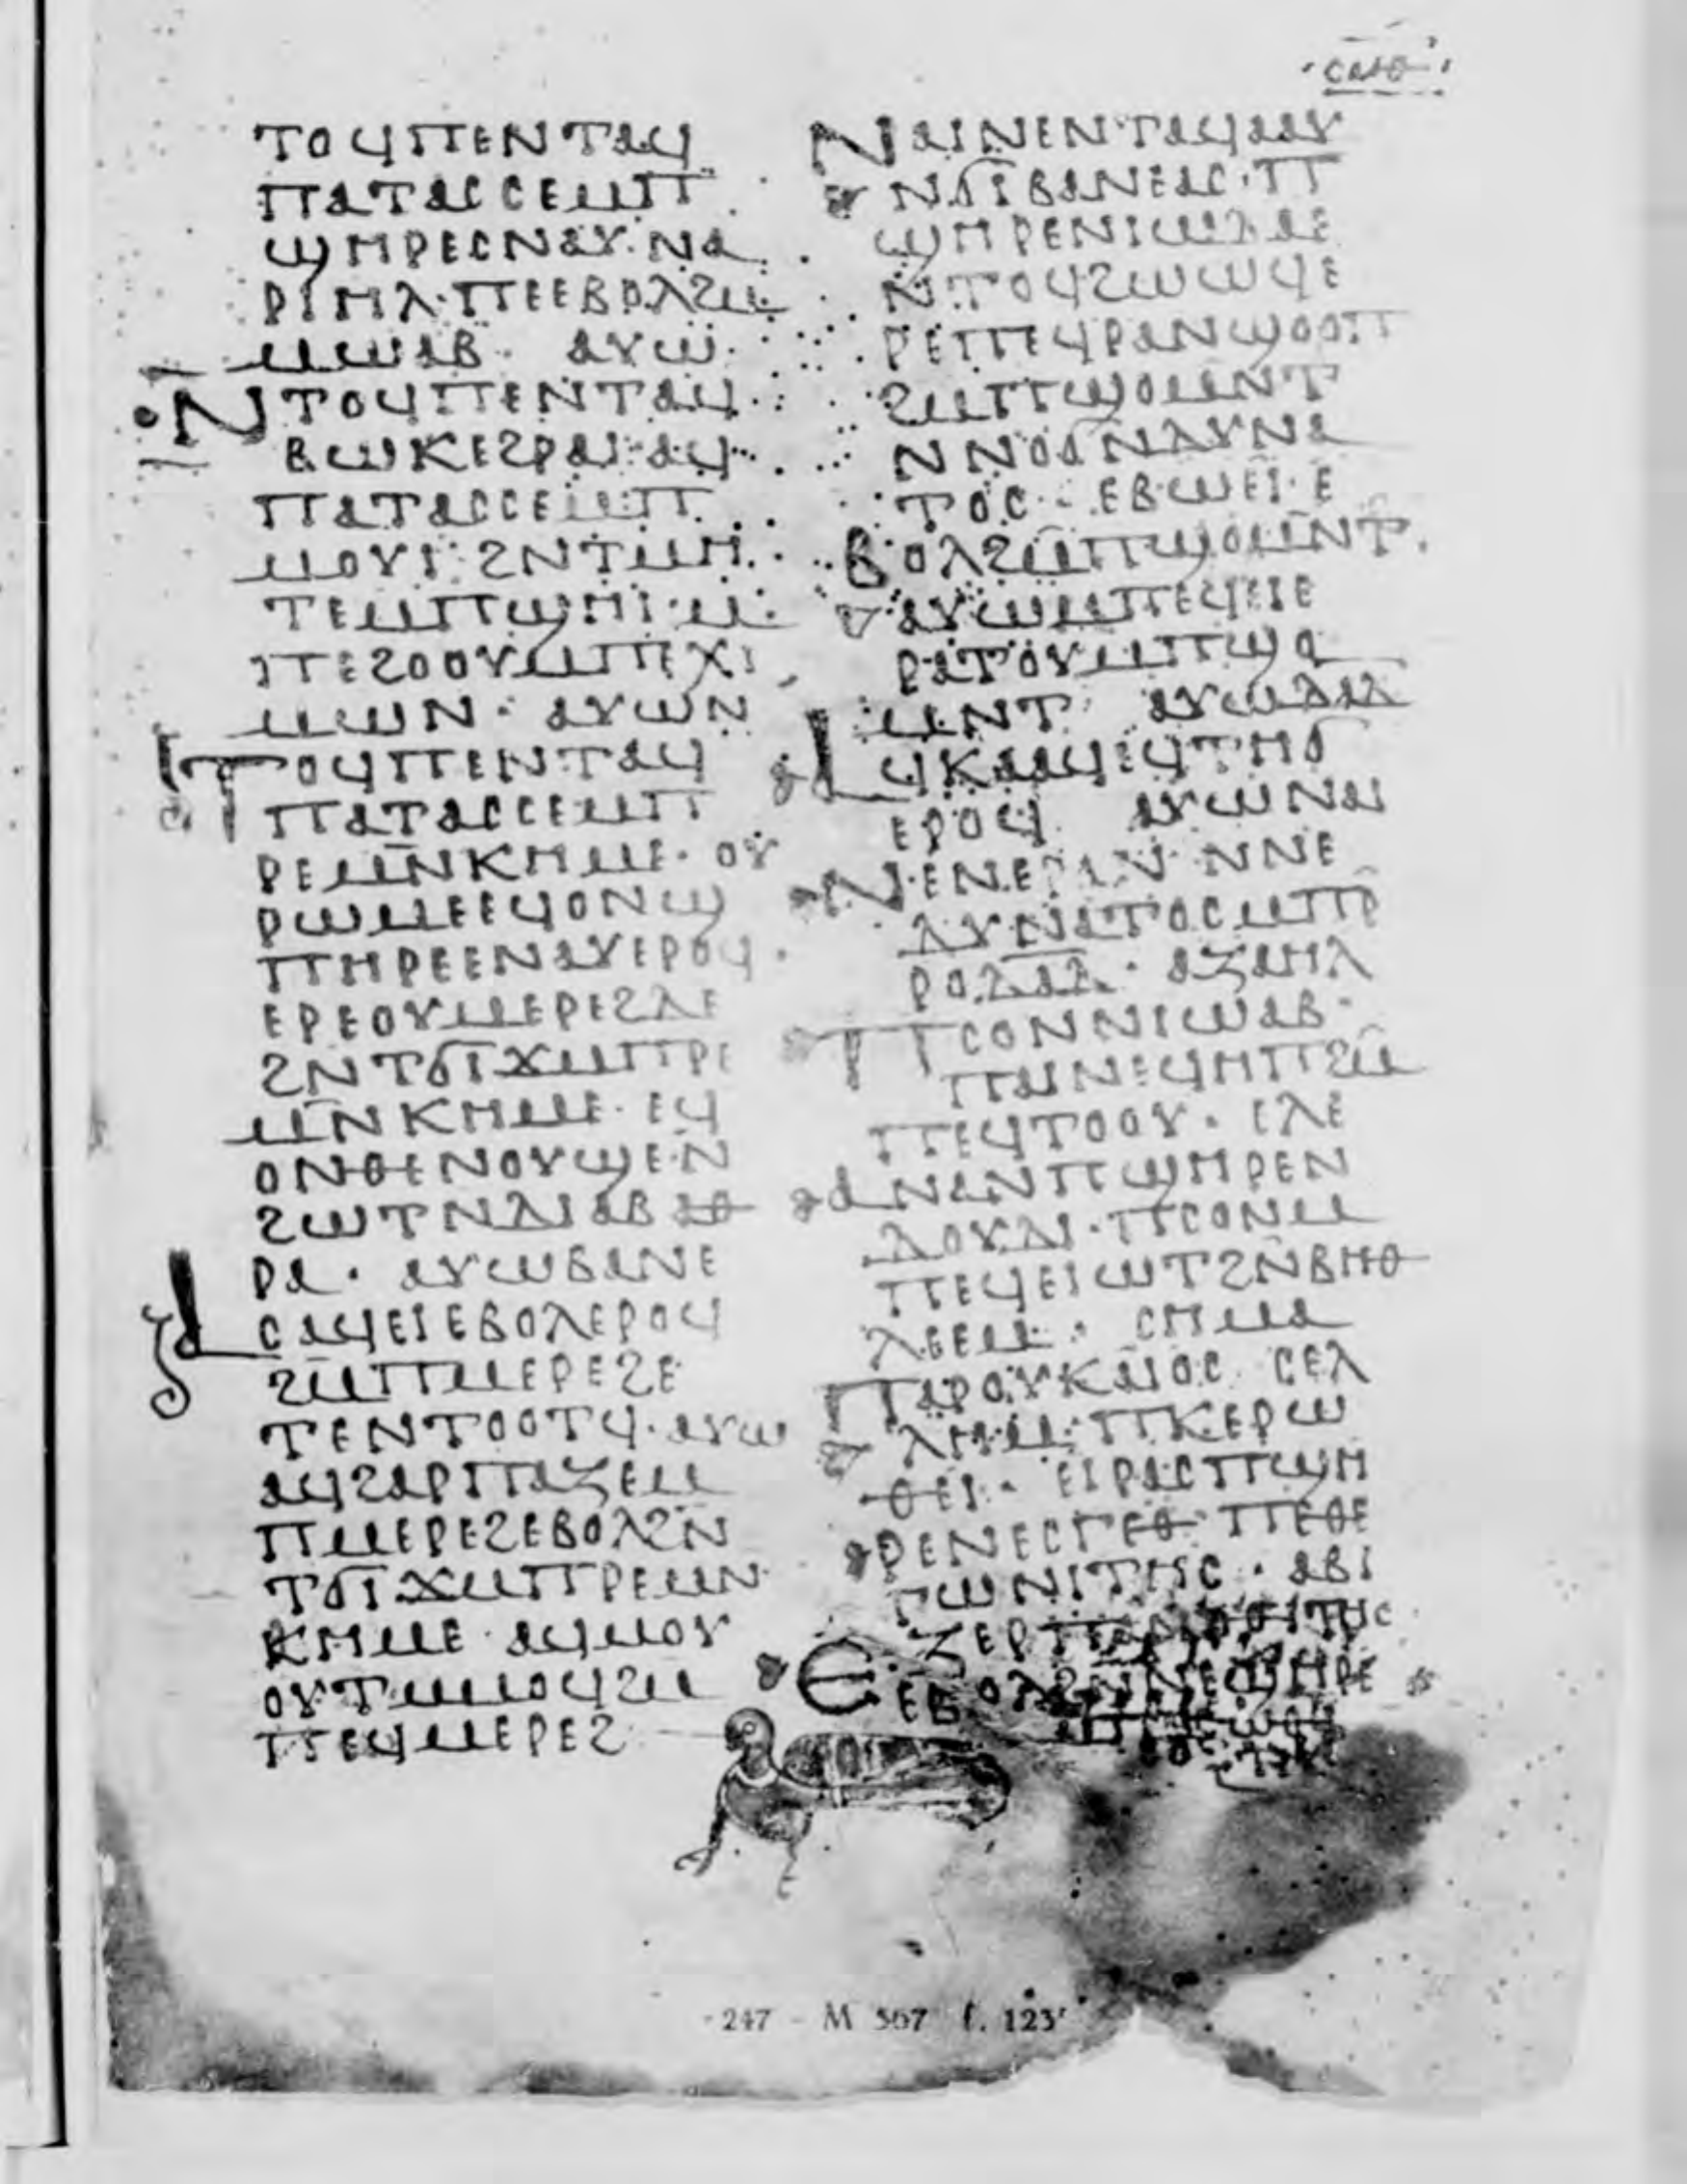 ⲥⲙⲑ
ⲧⲟϥⲡⲉⲛⲧⲁϥ
ⲡⲁⲧⲁⲥⲥⲉⲙⲡ
ϣⲏⲣⲉⲥⲛⲁⲩ·ⲛⲁ
ⲣⲓⲏⲗ·ⲡⲉⲉⲃⲟⲗϩⲙ
ⲙⲱⲁⲃ· ⲁⲩⲱ
ⲛⲧⲟϥⲡⲉⲛⲧⲁϥ
ⲃⲱⲕⲉϩⲣⲁⲓ·ⲁϥ
ⲡⲁⲧⲁⲥⲥⲉⲙⲡ
ⲙⲟⲩⲓ·ϩⲛⲧⲙⲏ
ⲧⲉⲙⲡϣⲏⲓ·ⲙ
ⲡⲉϩⲟⲟⲩⲙⲡⲉⲭⲓ
ⲙⲱⲛ· ⲁⲩⲱⲛ
ⲧⲟϥⲡⲉⲛⲧⲁϥ
ⲡⲁⲧⲁⲥⲥⲉⲙⲡ
ⲣⲉⲙⲛⲕⲏⲙⲉ· ⲟⲩ
ⲣⲱⲙⲉⲉϥⲟⲛϣ
ⲡⲏⲣⲉⲉⲛⲁⲩⲉⲣⲟϥ·
ⲉⲣⲉⲟⲩⲙⲉⲣⲉϩⲇⲉ
ϩⲛⲧϭⲓϫⲙⲡⲣⲉ
ⲙⲛⲕⲏⲙⲉ· ⲉϥ
ⲟⲛⲑⲉⲛⲟⲩϣⲉ·ⲛ
ϩⲱⲧⲛⲇⲓⲁⲃⲁⲑ
ⲣⲁ· ⲁⲩⲱⲃⲁⲛⲉ
ⲥⲁϥⲉⲓⲉⲃⲟⲗⲉⲣⲟϥ
ϩⲙⲡⲙⲉⲣⲉϩⲉ
ⲧⲉⲛⲧⲟⲟⲧϥ·ⲁⲩⲱ
ⲁϥϩⲁⲣⲡⲁⲍⲉⲙ
ⲡⲙⲉⲣⲉϩⲉⲃⲟⲗϩⲛ
ⲧϭⲓϫⲙⲡⲣⲉⲙⲛ
ⲕⲏⲙⲉ·ⲁϥⲙⲟⲩ
ⲟⲩⲧⲙⲙⲟϥϩⲙ
ⲡⲉϥⲙⲉⲣⲉϩ
ⲛⲁⲓⲛⲉⲛⲧⲁϥⲁⲁⲩ
ⲛϭⲓⲃⲁⲛⲉⲁⲥ·ⲡ
ϣⲏⲣⲉⲛⲓⲱⲇⲁⲉ
ⲛⲧⲟϥϩⲱⲱϥⲉ
ⲣⲉⲡⲉϥⲣⲁⲛϣⲟⲟⲡ
ϩⲙⲡϣⲟⲙⲛⲧ
ⲛⲛⲟϭⲛⲇⲩⲛⲁ
ⲧⲟⲥ· ⲉⲃⲱⲉⲓ·ⲉ
ⲃⲟⲗϩⲙⲡϣⲟⲙⲛⲧ·
ⲁⲩⲱⲙⲡⲉϥⲉⲓⲉ
ⲣⲁⲧⲟⲩⲙⲡϣⲟ
ⲙⲛⲧ· ⲁⲩⲱⲇⲁⲇ
ϥⲕⲁⲁϥⲉϥⲧⲏϭ
ⲉⲣⲟϥ ⲁⲩⲱⲛⲁⲓ
ⲛⲉⲛⲉⲣⲁⲛ·ⲛⲛⲉ
ⲇⲩⲛⲁⲧⲟⲥⲙⲡⲣ
ⲣⲟⲇⲁⲇ· ⲁⲍⲁⲏⲗ
ⲡⲥⲟⲛⲛⲓⲱⲁⲃ·
ⲡⲁⲓⲛⲉϥⲏⲡϩⲙ
ⲡⲉϥⲧⲟⲟⲩ· ⲉⲗⲉ
ⲁⲛⲁⲛⲡϣⲏⲣⲉⲛ
ⲇⲟⲩⲇⲓ·ⲡⲥⲟⲛⲙ
ⲡⲉϥⲉⲓⲱⲧϩⲛⲃⲏⲑ
ⲗⲉⲉⲙ· ⲥⲏⲙⲁ
ⲡⲁⲣⲟⲩⲕⲁⲓⲟⲥ ⲥⲉⲗ
ⲗⲏⲙ·ⲡⲕⲉⲣⲱ
ⲑⲉⲓ· ⲉⲓⲣⲁⲥⲡϣⲏ
ⲣⲉⲛⲉⲥⲅⲉⲑ·ⲡⲉⲑⲉ
ⲅⲱⲛⲓⲧⲏⲥ· ⲁⲃⲓ
ⲉⲃⲟⲗϩⲛⲛⲉϣⲏⲣⲉ
247 – M 567 f. 123ʳ